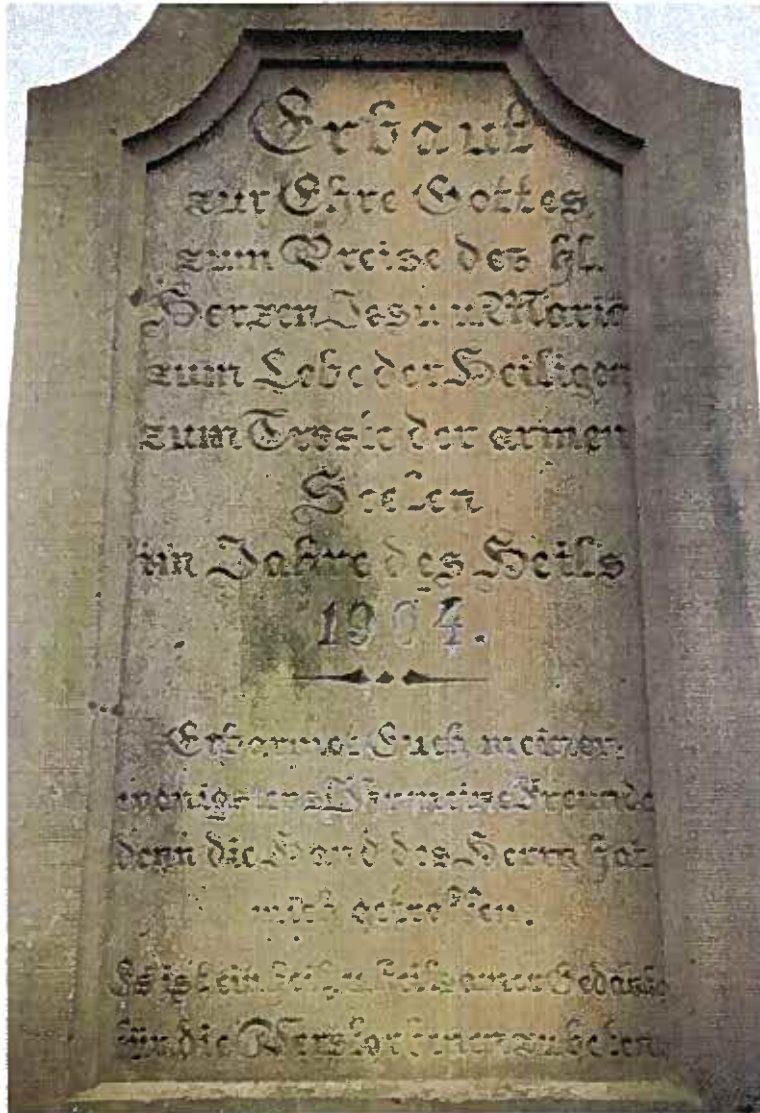 Erbaut
zur Ehre Gottes
zum Preise des hl.
Herzen Jesu u Mariä
zum Lobe der Heiligen
zum Troste der armen
Seelen
im Jahre des Heils
1904.
Erbarmet Euch meiner
wenigstens Ihr meine Freunde
denn die Hand des Herrn hat
mich getroffen.
Es ist ein heil. u. heilsamer Gedanke
für die Verstorbenen zu beten.